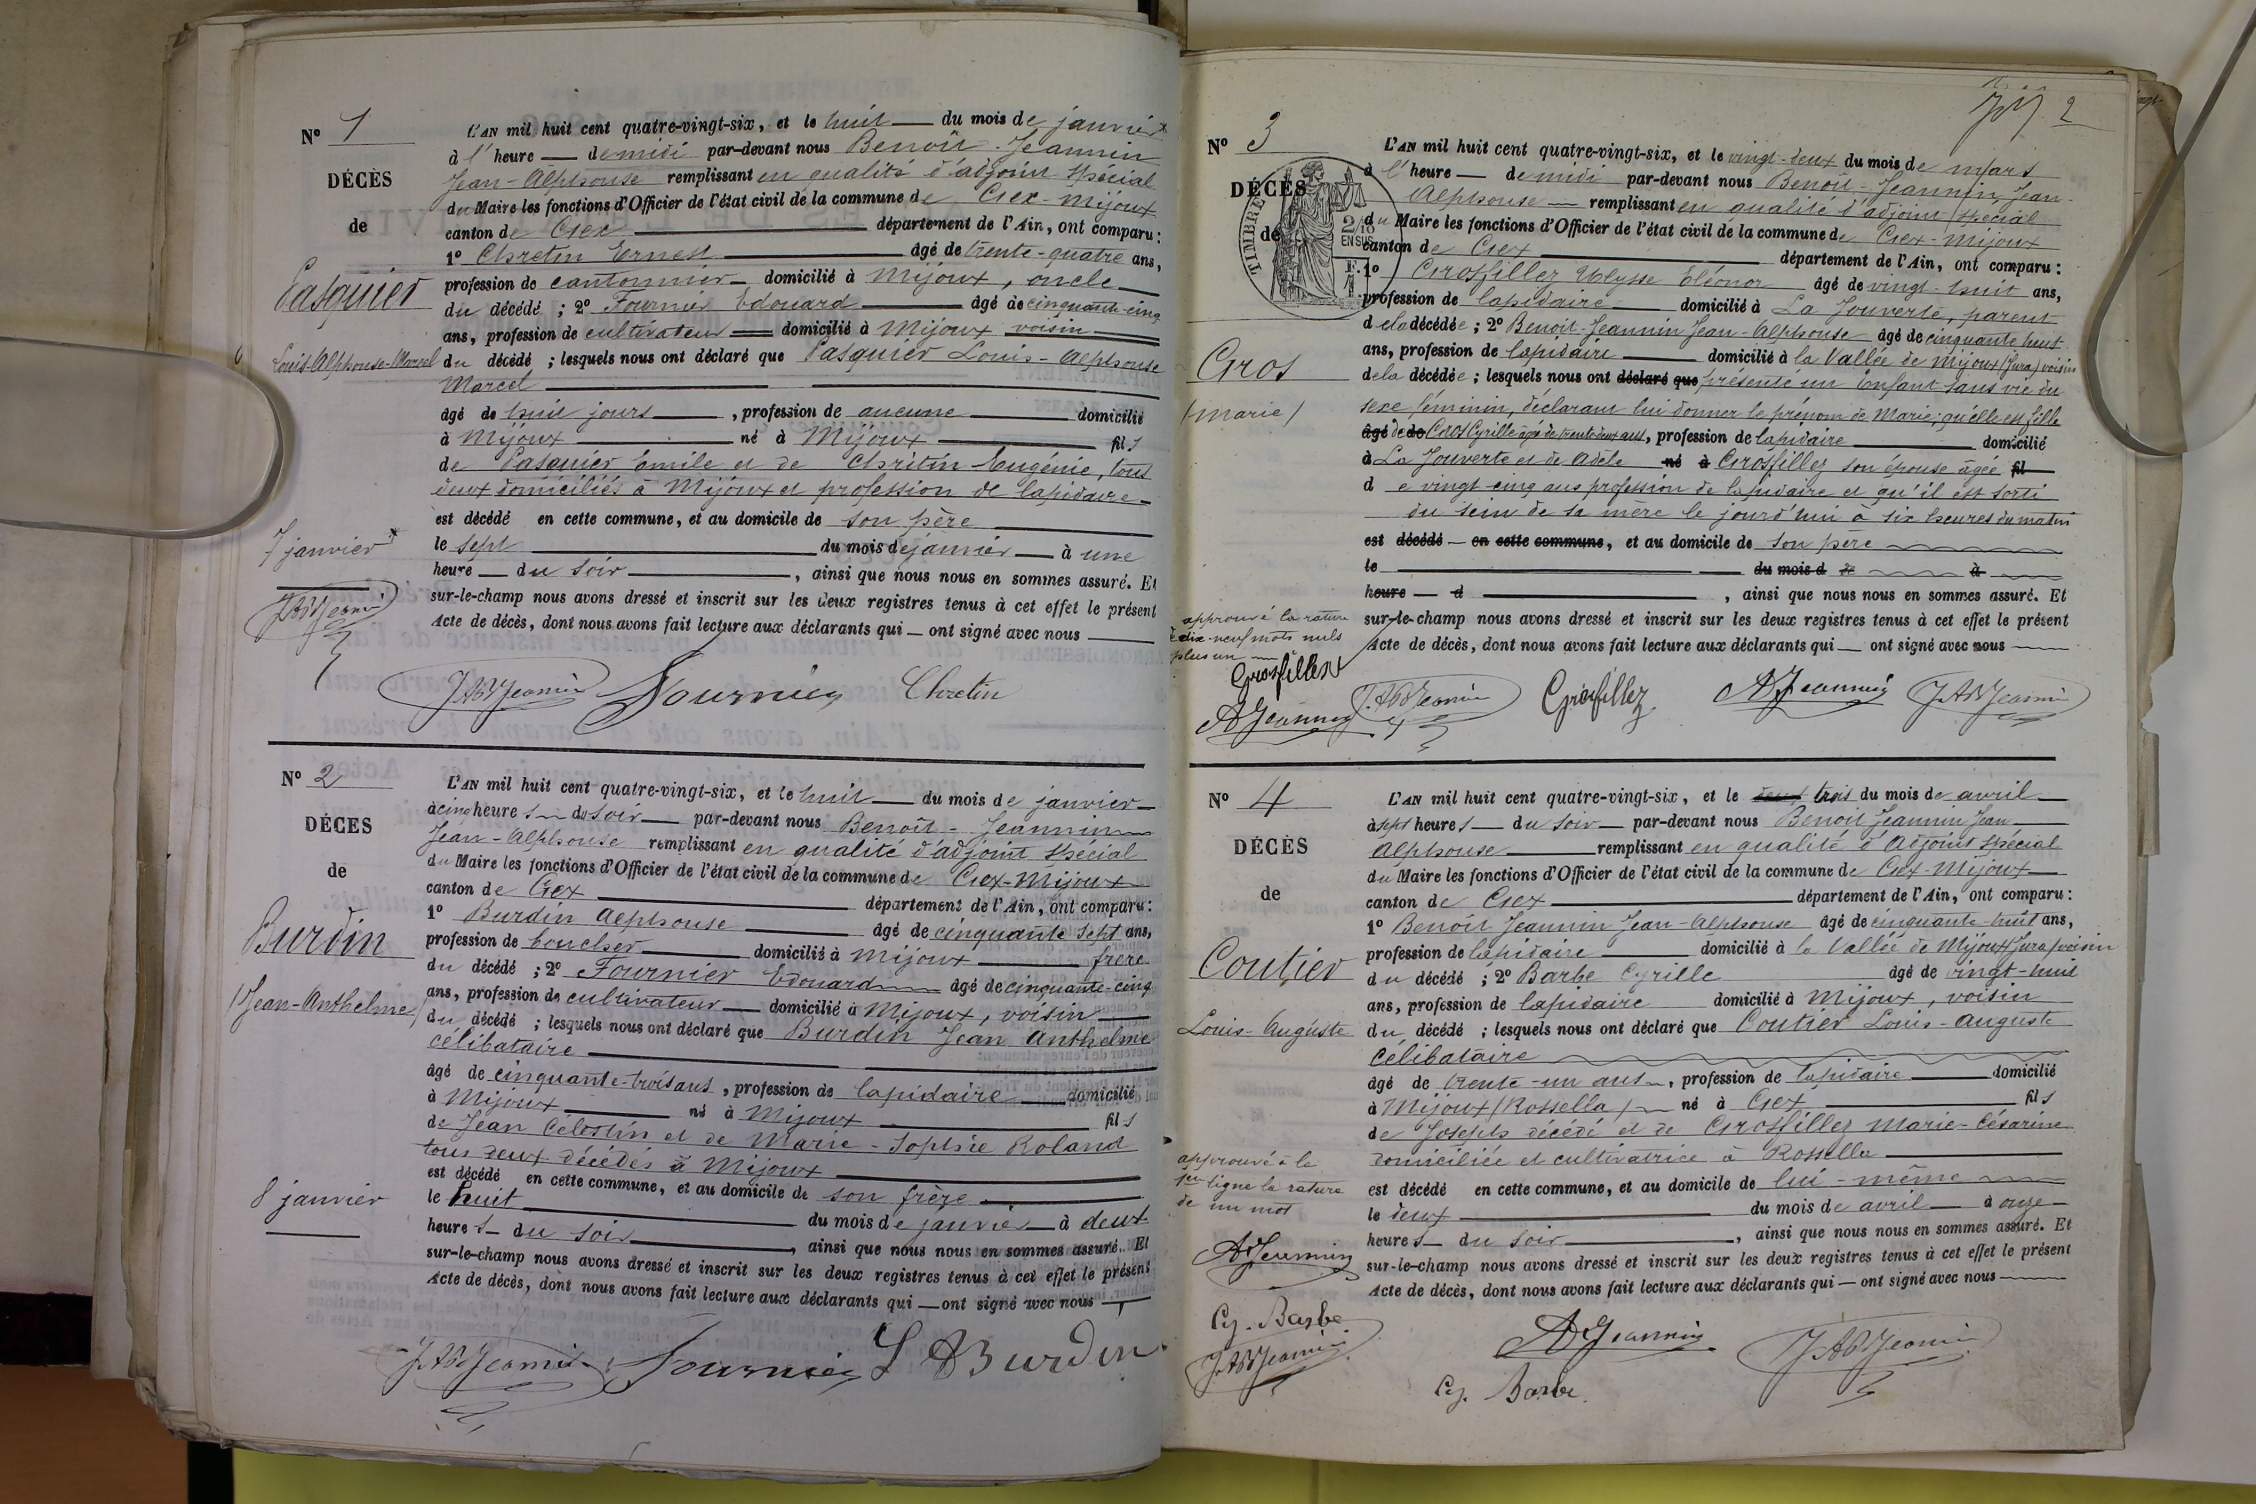 N° 1
DÉCÈS
de
Pasquier
Louis-Alphonse-Marcel
7 janvier
L'AN mil huit cent quatre-vingt-six, et le huit du mois de janvier
à l'heure de midi par-devant nous Benoît-Jeannin
Jean-Alphonse remplissant en qualité d'adjoint spécial
du Maire les fonctions d'Officier de l'état civil de la commune de Gex-Mijoux
canton de Gex département de l'Ain, ont comparu :
1° Chretin Ernest âgé de trente-quatre ans,
profession de cantonnier domicilié à Mijoux, oncle
du décédé ; 2° Fournier Edouard âgé de cinquante-cinq
ans, profession de cultivateur domicilié à Mijoux voisin
du décédé ; lesquels nous ont déclaré que Pasquier Louis-Alphonse
Marcel
âgé de huit jours, profession de aucune domicilié
à Mijoux né à Mijoux fils
de Pasquier Emile et de Chrétin Eugénie, tous
deux domiciliés à Mijoux et profession de lapidaire
est décédé en cette commune, et au domicile de son père
le sept du mois de janvier à une
heure du soir, ainsi que nous nous en sommes assuré. Et
sur-le-champ nous avons dressé et inscrit sur les deux registres tenus à cet effet le présent
Acte de décès, dont nous avons fait lecture aux déclarants qui ont signé avec nous
JABtJeannin Fournier Chretin
N° 2
DÉCÈS
de
Burdin
(Jean-Anthelme)
8 janvier
L'AN mil huit cent quatre-vingt-six, et le huit du mois de janvier
à cinq heures du soir par-devant nous Benoît-Jeannin
Jean-Alphonse remplissant en qualité d'adjoint spécial
du Maire les fonctions d'Officier de l'état civil de la commune de Gex-Mijoux
canton de Gex département de l'Ain, ont comparu :
1° Burdin Alphonse âgé de cinquante sept ans,
profession de boucher domicilié à Mijoux frère
du décédé ; 2° Fournier Edouard âgé de cinquante-cinq
ans, profession de cultivateur domicilié à Mijoux, voisin
du décédé ; lesquels nous ont déclaré que Burdin Jean Anthelme
célibataire
âgé de cinquante-trois ans, profession de lapidaire domicilié
à Mijoux né à Mijoux fils
de Jean Célestin et de Marie-Sophie Roland
tous deux décédés à Mijoux
est décédé en cette commune, et au domicile de son frère
le huit du mois de janvier à deux
heures du soir, ainsi que nous nous en sommes assuré. Et
sur-le-champ nous avons dressé et inscrit sur les deux registres tenus à cet effet le présent
Acte de décès, dont nous avons fait lecture aux déclarants qui ont signé avec nous
JABtJeannin Fournier Burdin
2
N° 3
DÉCÈS
de
TIMBRE
2/10
EN SUS
Gros
(Marie)
approuvé la rature
dix-neuf mots nuls
plus un
Grosfillex
AJeannin
L'AN mil huit cent quatre-vingt-six, et le vingt-deux du mois de mars
à l'heure de midi par-devant nous Benoît-Jeannin, Jean-
Alphonse remplissant en qualité d'adjoint spécial
du Maire les fonctions d'Officier de l'état civil de la commune de Gex-Mijoux
canton de Gex département de l'Ain, ont comparu :
1° Grosfillez Ulysse Eléonor âgé de vingt-huit ans,
profession de lapidaire domicilié à La Jouverte, parent
de la décédée ; 2° Benoit-Jeannin Jean-Alphonse âgé de cinquante huit
ans, profession de lapidaire domicilié à la Vallée de Mijoux (Jura) voisin
de la décédée ; lesquels nous ont déclaré que présenté un Enfant sans vie du
sexe féminin, déclarant lui donner le prénom de Marie; qu'elle est fille
âgé de de Gros Cyrille âgé de trente deux ans, profession de lapidaire domicilié
à La Jouverte et de Adèle né à Grosfillez son épouse âgée fil
de vingt-cinq ans profession de lapidaire et qu'il est sorti
du sein de sa mère le jourd'hui à six heures du matin
est décédé en cette commune, et au domicile de son père
le du mois d à
heure d, ainsi que nous nous en sommes assuré. Et
sur-le-champ nous avons dressé et inscrit sur les deux registres tenus à cet effet le présent
Acte de décès, dont nous avons fait lecture aux déclarants qui ont signé avec nous
JABtJeannin Grosfillez AJeannin JABtJeannin
N° 4
DÉCÈS
de
Coutier
Louis-Auguste
approuvé à la
1re ligne la rature
de un mot
AJeannin
Cy. Barbe
JABtJeannin
L'AN mil huit cent quatre-vingt-six, et le deux trois du mois de avril
à sept heures du soir par-devant nous Benoit Jeannin Jean
Alphonse remplissant en qualité d'Adjoint spécial
du Maire les fonctions d'Officier de l'état civil de la commune de Gex-Mijoux
canton de Gex département de l'Ain, ont comparu :
1° Benoit Jeannin Jean-Alphonse âgé de cinquante-huit ans,
profession de lapidaire domicilié à la Vallée de Mijoux (Jura) voisin
du décédé ; 2° Barbe Cyrille âgé de vingt-huit
ans, profession de lapidaire domicilié à Mijoux, voisin
du décédé ; lesquels nous ont déclaré que Coutier Louis-Auguste
célibataire
âgé de trente-un ans, profession de lapidaire domicilié
à Mijoux (Rossella) né à Gex fils
de Joseph décédé et de Grosfillez Marie-Césarine
domiciliée et cultivatrice à Rossella
est décédé en cette commune, et au domicile de lui-même
le deux du mois de avril à onze
heures du soir, ainsi que nous nous en sommes assuré. Et
sur-le-champ nous avons dressé et inscrit sur les deux registres tenus à cet effet le présent
Acte de décès, dont nous avons fait lecture aux déclarants qui ont signé avec nous
AJeannin JABtJeannin
Cy. Barbe